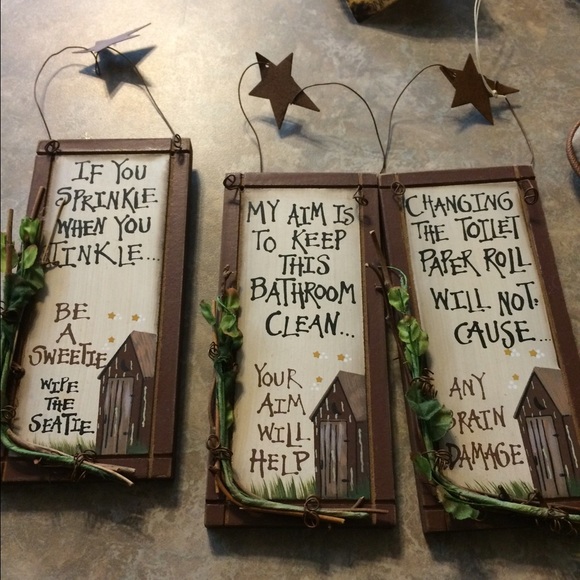 IF YOU
SPRINKLE
WHEN YOU
TINKLE...
BE
A
SWEETIE
WIPE
THE
SEATIE
MY AIM IS
TO KEEP
THIS
BATHROOM
CLEAN...
YOUR
AIM
WILL
HELP
CHANGING
THE TOILET
PAPER ROLL
WILL NOT
CAUSE...
ANY
BRAIN
DAMAGE